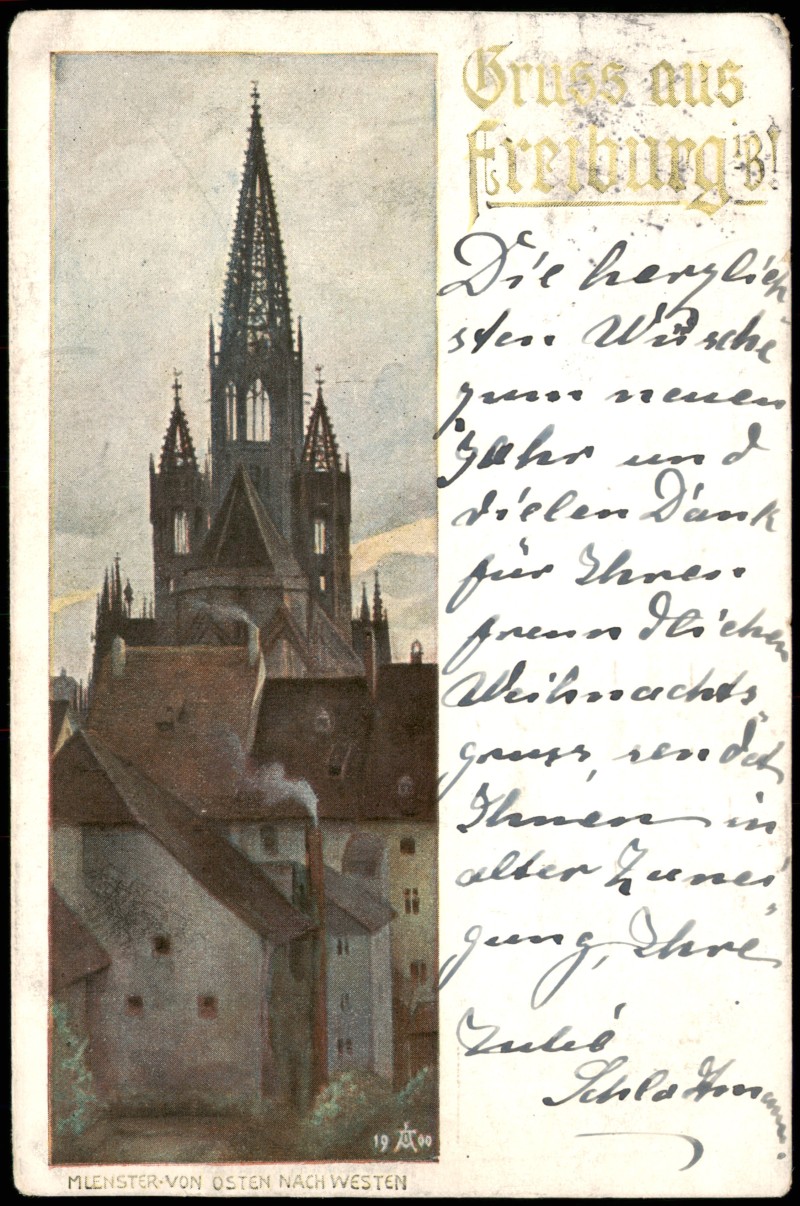 Gruss aus
Freiburg i/B!
Die herzlich-
sten Wüsche
zum neuen
Jahr und
vielen Dank
für Ihren
freundlichen
Weihnachts-
gruss, sendet
Ihnen in
alter Zunei-
gung, Ihre
Schlottmann.
19 00
MUENSTER·VON OSTEN NACH WESTEN